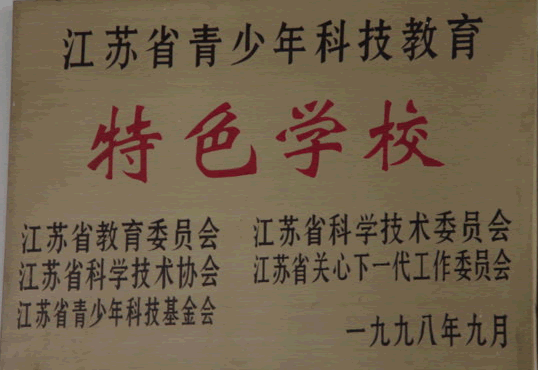 江苏省青少年科技教育
特色学校
江苏省教育委员会 江苏省科学技术委员会
江苏省科学技术协会 江苏省关心下一代工作委员会
江苏省青少年科技基金会
一九九八年九月